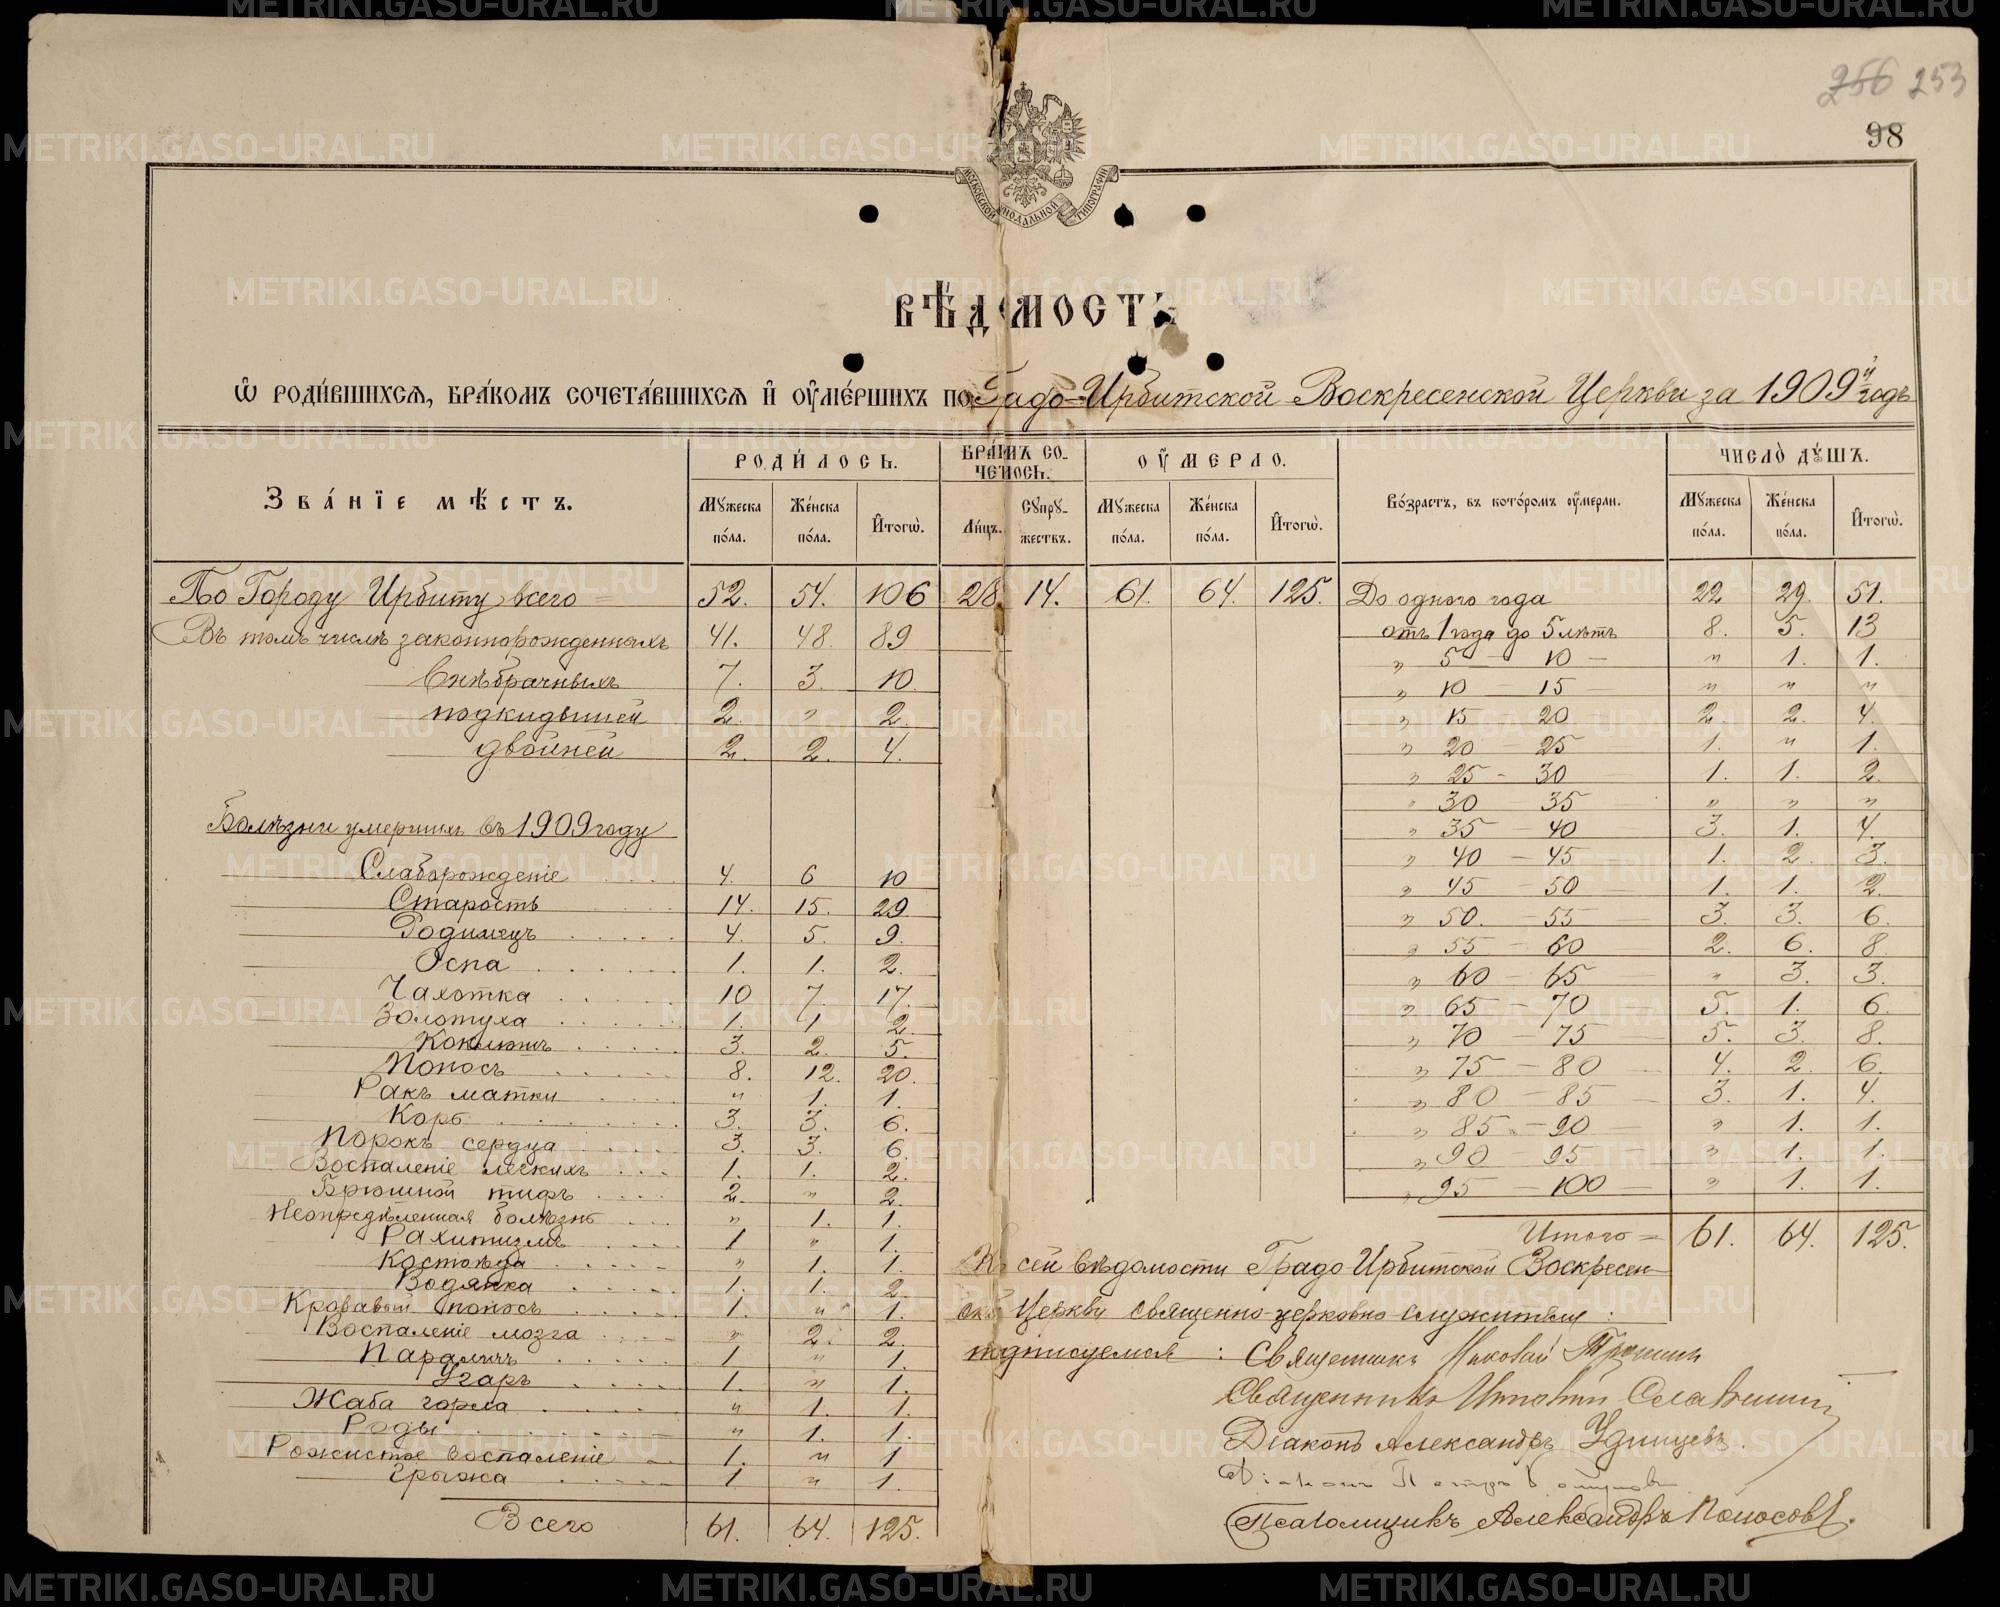 256 253
98
МОСКОВСКОЙ СѴНОДАЛЬНОЙ ТИПОГРАФІИ
ВѢДОМОСТЬ
Ѡ РОДИ́ВШИХСѦ, БРА́КОМЪ СОЧЕТА́ВШИХСѦ И҆ ОУ҆МЕ́РШИХЪ ПО Градо-Ирбитской Воскресенской Церкви за 1909й годъ
ЗВА́НЇЕ МѢ́СТЪ.
РОДИ́ЛОСЬ.
Мꙋжеска по́ла.
Же́нска по́ла.
И҆тогѡ̀.
БРА́КѠМЪ СО-
ЧЕТА́ЛОСЬ.
Ли́цъ.
Сꙋпрꙋ-
жествъ.
ОУ҆МЕРЛО.
Мꙋжеска по́ла.
Же́нска по́ла.
И҆тогѡ̀.
Во́зрастъ, въ кото́ромъ оу҆́мерли.
ЧИСЛО̀ ДꙊ́ШЪ.
Мꙋжеска по́ла.
Же́нска по́ла.
И҆тогѡ̀.
По Городу Ирбиту всего = 52. 54. 106 28. 14. 61. 64. 125.
Въ томъ числѣ законнорожденныхъ 41. 48. 89
Внѣбрачныхъ 7. 3. 10.
подкидышей 2. " 2.
двойней 2. 2. 4.
Болѣзни умершихъ въ 1909 году
Слаборожденіе . . . . 4. 6 10
Старость . . . . 14. 15. 29.
Родимецъ . . . . 4. 5. 9.
Оспа . . . . . 1. 1. 2.
Чахотка . . . . 10 7. 17.
Золотуха . . . . . 1. 1 2.
Коклюшъ . . . . 3. 2. 5.
Поносъ . . . . . 8. 12. 20.
Ракъ матки . . . . " 1. 1.
Корь . . . . . . . 3. 3. 6.
Порокъ сердца . . . . 3. 3. 6.
Воспаленіе легкихъ . . . 1. 1. 2.
Брюшной тифъ . . . . 2. " 2.
Неопредѣленная болѣзнь . . . " 1. 1.
Рахитизмъ . . . . 1 " 1.
Костоѣда . . . . . " 1. 1.
Водянка . . . . . 1. 1. 2.
Кровавый поносъ . . . . 1. " 1.
Воспаленіе мозга . . . . " 2. 2.
Параличъ . . . . . 1 " 1.
Угаръ . . . . 1. " 1.
Жаба горла . . . . " 1. 1.
Роды . . . . . . . " 1. 1.
Рожистое воспаленіе 1. " 1
Грыжа . . . . . 1 " 1.
Всего 61. 64. 125.
До одного года 22 29. 51.
отъ 1 года до 5 лѣтъ 8. 5. 13
" 5 — 10 — " 1. 1.
" 10 — 15 — " " "
" 15 — 20 — 2. 2. 4.
" 20 — 25 — 1. " 1.
" 25 — 30 — 1. 1. 2.
" 30 — 35 — " " "
" 35 — 40 — 3. 1. 4.
" 40 — 45 — 1. 2. 3.
" 45 — 50 — 1. 1. 2.
" 50. — 55 — 3. 3. 6.
" 55 — 60 — 2. 6. 8.
" 60 — 65 — " 3. 3.
" 65 — 70 — 5. 1. 6.
" 70 — 75 — 5. 3. 8.
" 75 — 80 — 4. 2. 6.
" 80 — 85 — 3. 1. 4.
" 85 — 90 — " 1. 1.
" 90 — 95 — " 1. 1.
" 95 — 100 — " 1. 1.
Итого = 61. 64. 125.
Къ сей вѣдомости Градо Ирбитской Воскресен-
ской Церкви священно-церковно-служители :
подписуемся : Священникъ Николай
Священникъ Славнинъ
Діаконъ Александръ Удинцевъ.
Діаконъ Петръ
Псаломщикъ Александръ Поносовъ.
METRIKI.GASO-URAL.RU